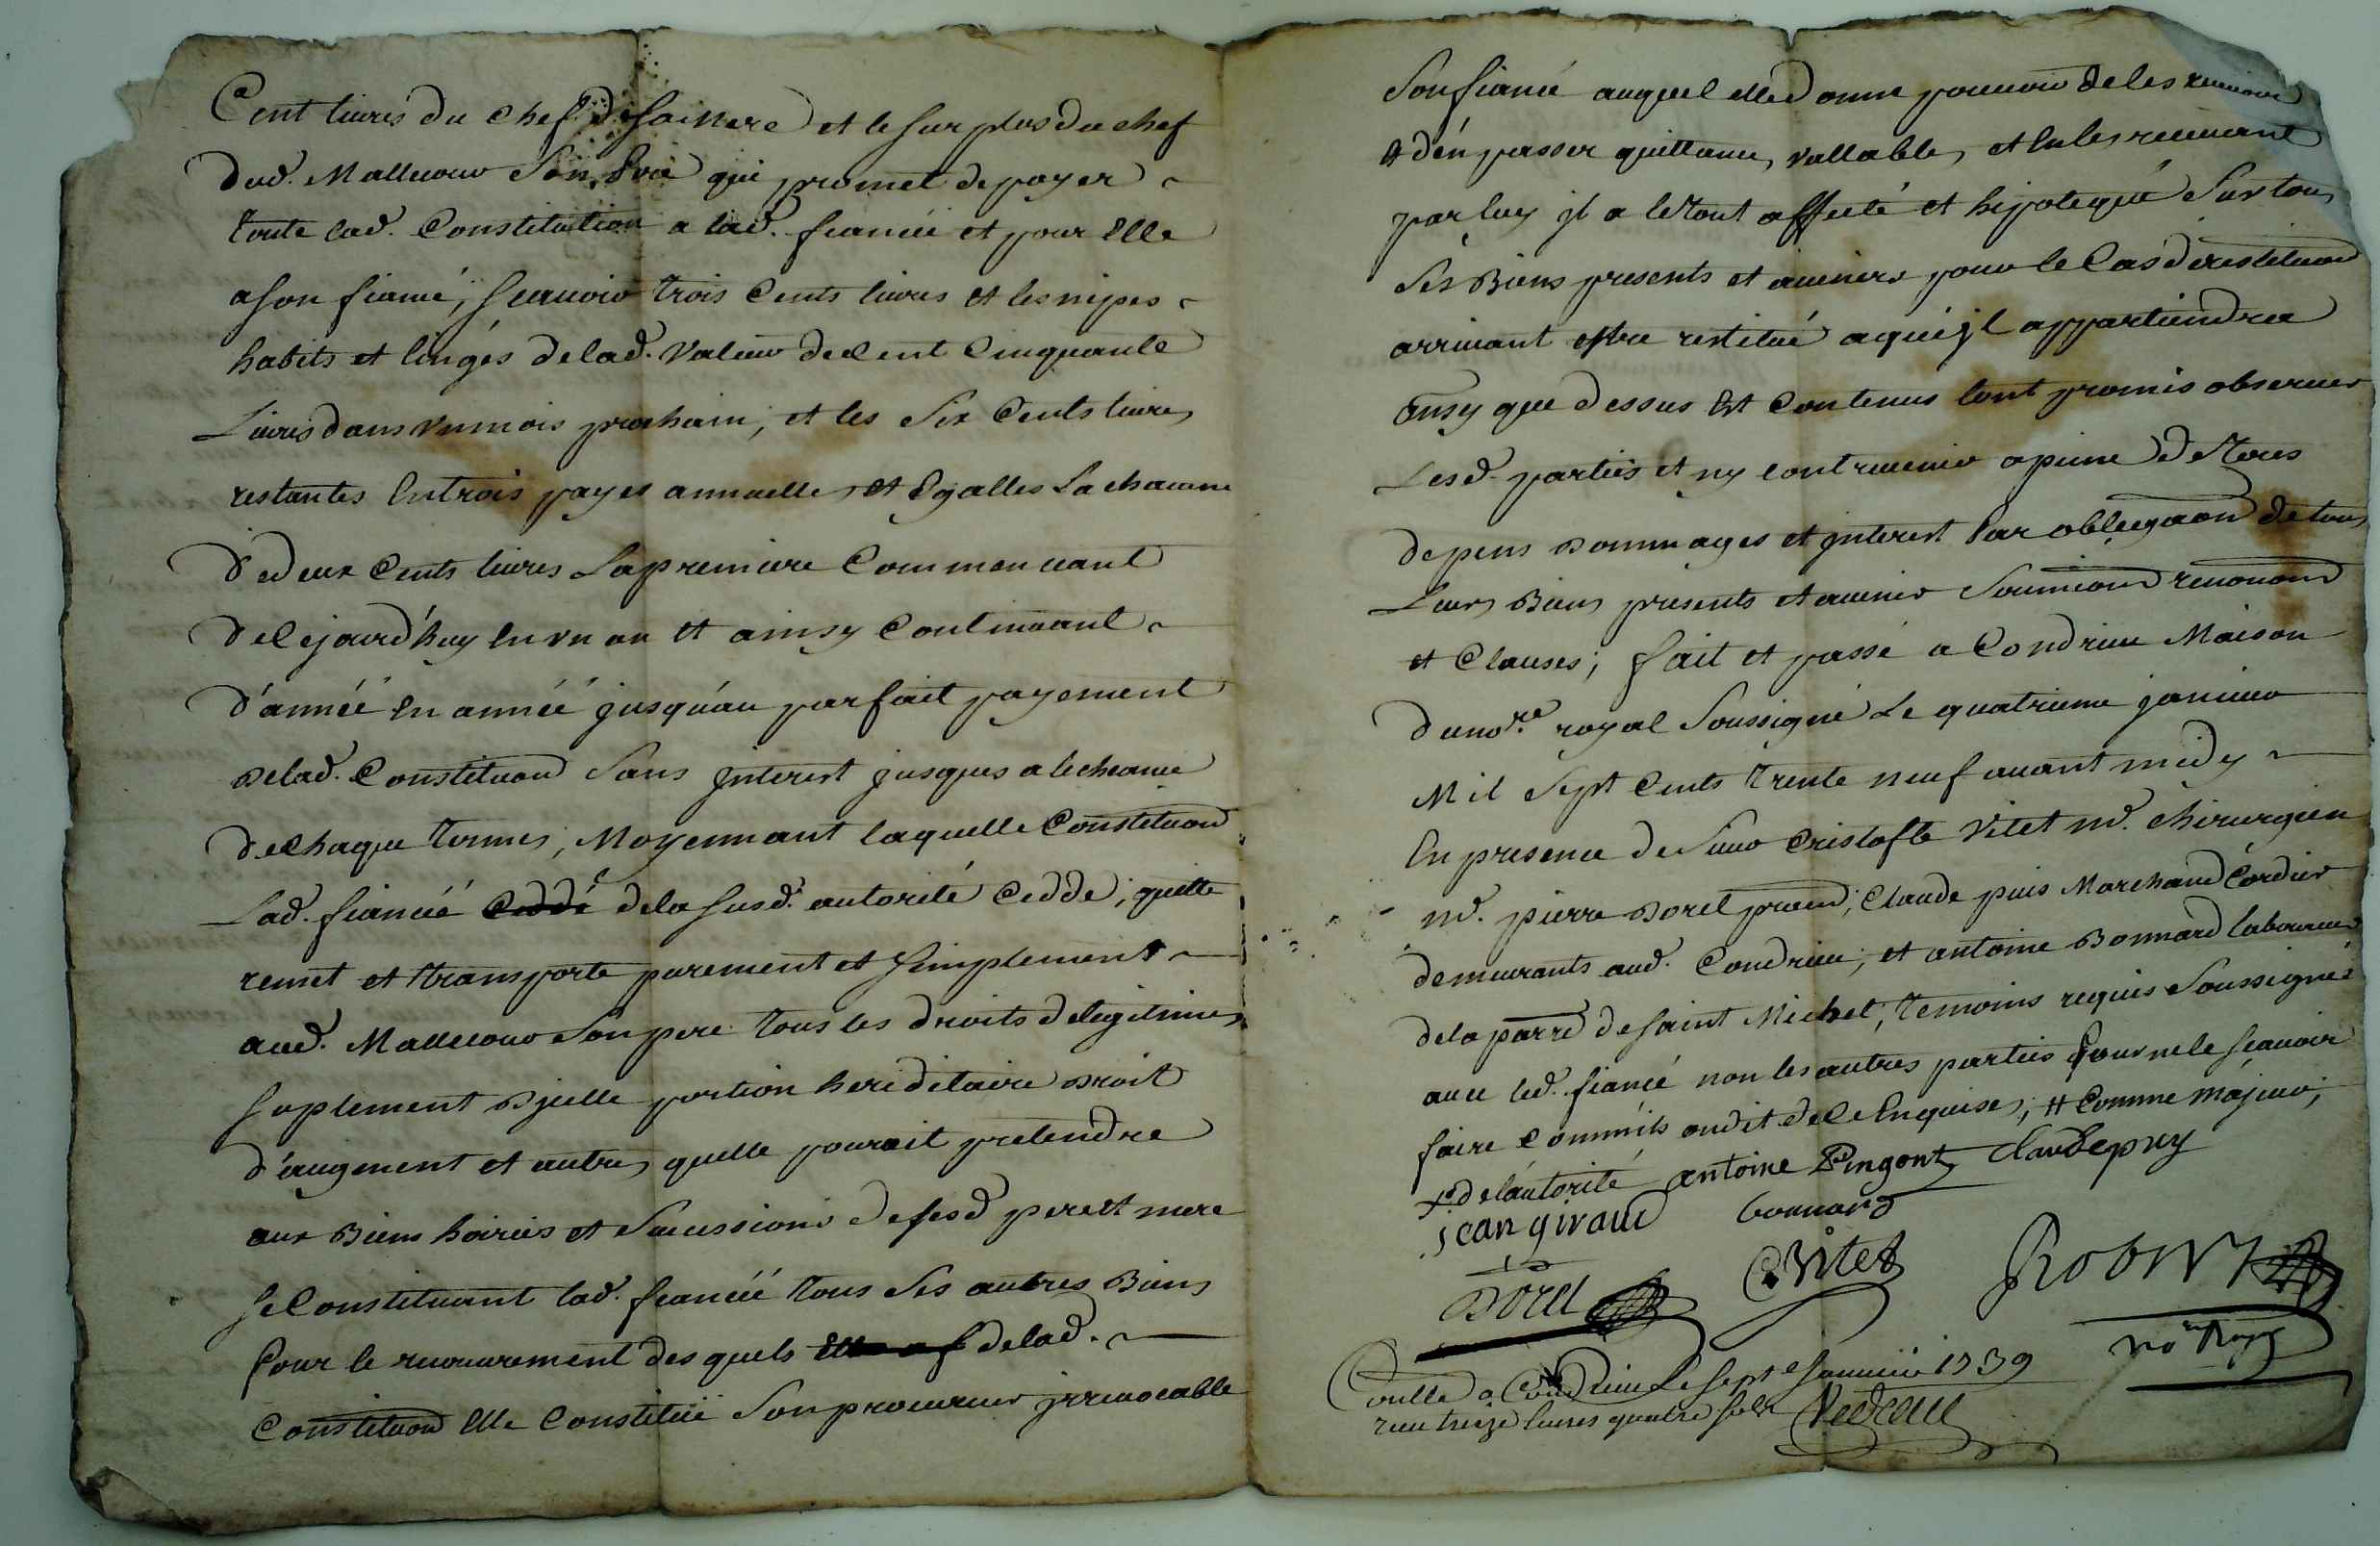 Cent livres du chef de sa mere et le surplus du chef
dud. Mallecour son pere qui promet de payer
toute lad. Constitution a lad. fiancée et pour Elle
a son fiancé, scauoir trois Cents liures et les nipes
habits et linges de lad. valeur de Cent Cinquante
Liures dans vn mois prochain, et les Six Cents liures
restantes En trois payes annuelles et Egalles La chacune
de deux Cents liures La premiere Commencant
de Cejourd'huy En vn an et ainsy Continuant
d'année En année jusqu'au parfait payement
de lad. Constituon Sans jnterest jusques a lecheance
de Chaque termes, Moyennant laquelle Constituon
Lad. fiancéé Cedde de la susd. autorité Cedde, quitte
remet et transporte purement et simplement
aud. Mallecour son pere tous les droits de legitime,
suplement d'jcelle portion hereditaire droit
d'augment et autres quelle pouroit pretendre
aux Biens hoiries et Sucussions de sesd pere et mere
se Constituant lad. fiancéé tous Ses autres Biens
Pour le recouurement desquels de lad.
Constituon Elle Constitue Son procureur jrreuocable
Son fiancé auquel elle donne pouuoir de les receuoir
et d'en passer quittance, vallable, et En les receuant
par luy jl a le tout affecté et hipotequé Sur tous
Ses Biens presents et auenirs pour le Cas de restituon
arriuant estre restitué a qui jl appartiendra
ainsy que dessus Est Contenu lont promis obseruer
Lesd. parties et ny contreuenir a peine de tous
depens dommages et jnterest Par obligaon de tous
Leurs Biens presents et auenir Soumions renonons
et Clauses; fait et passé a Condrieu Maison
du nore. royal Soussigné Le quatrieme januier
Mil Sept Cents trente neuf auant midy
En presence de Sieur Cristofle Vitet me. chirurgien
me. pierre Dorel praen, Claude puis Marchand Cordier
demeurants aud. Condrieu, et antoine Bonnard laboureur
de la parre de saint Michel, temoins requis Soussignés
auec led. fiancé non les autres parties Pour ne le scauoir
faire Comm'ils ondit de Ce Enquises, # Comme majeur,
de l'autorité antoine Pingont Claudepuy
jean giraud bonnard
Dorel CVitet Robert
no Roy
Conllé a Condrieu Le sept Januier 1739
recu treize liures quatre sols